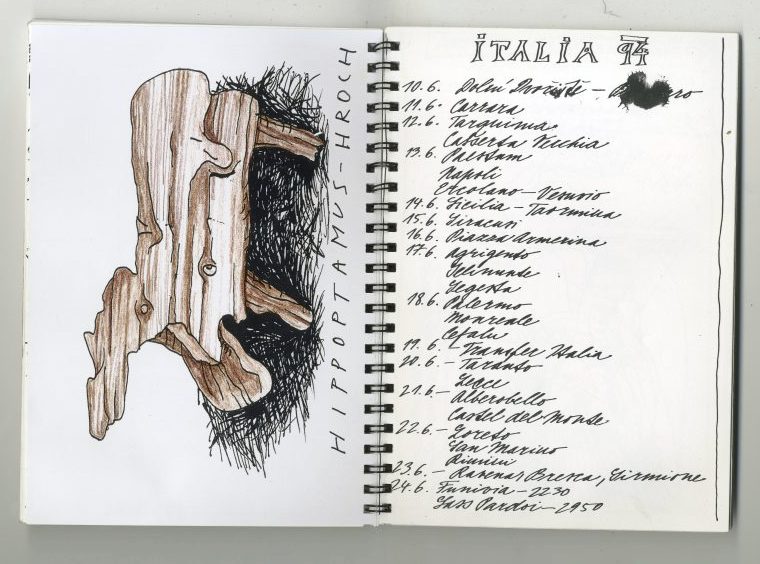 HIPPOPTAMUS-HROCH
ITALIA 94
10.6. Dolní Dvořiště -
11.6. Carrara
12.6. Tarquinia
Casserta Vecchia
13.6. Paestam
Napoli
Ercolano - Vesuvio
14.6. Sicilia - Taormina
15.6. Siracusi
16.6. Piazza Armerina
17.6. Agrigento
Selinunte
Segesta
18.6. Palermo
Monreale
Cefalu
19.6. - Transfer Italia
20.6. - Taranto
Lecce
21.6. - Alberobello
Castel del Monte
22.6. - Loreto
San Marino
Rimini
23.6. - Ravena, Bresca, Sirmione
24.6. Funivia - 2230
Sass Pardoi - 2950